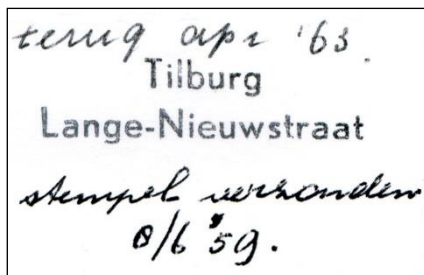 terug apr '63.
Tilburg
Lange-Nieuwstraat
stempel verzonden
8/6 '59.